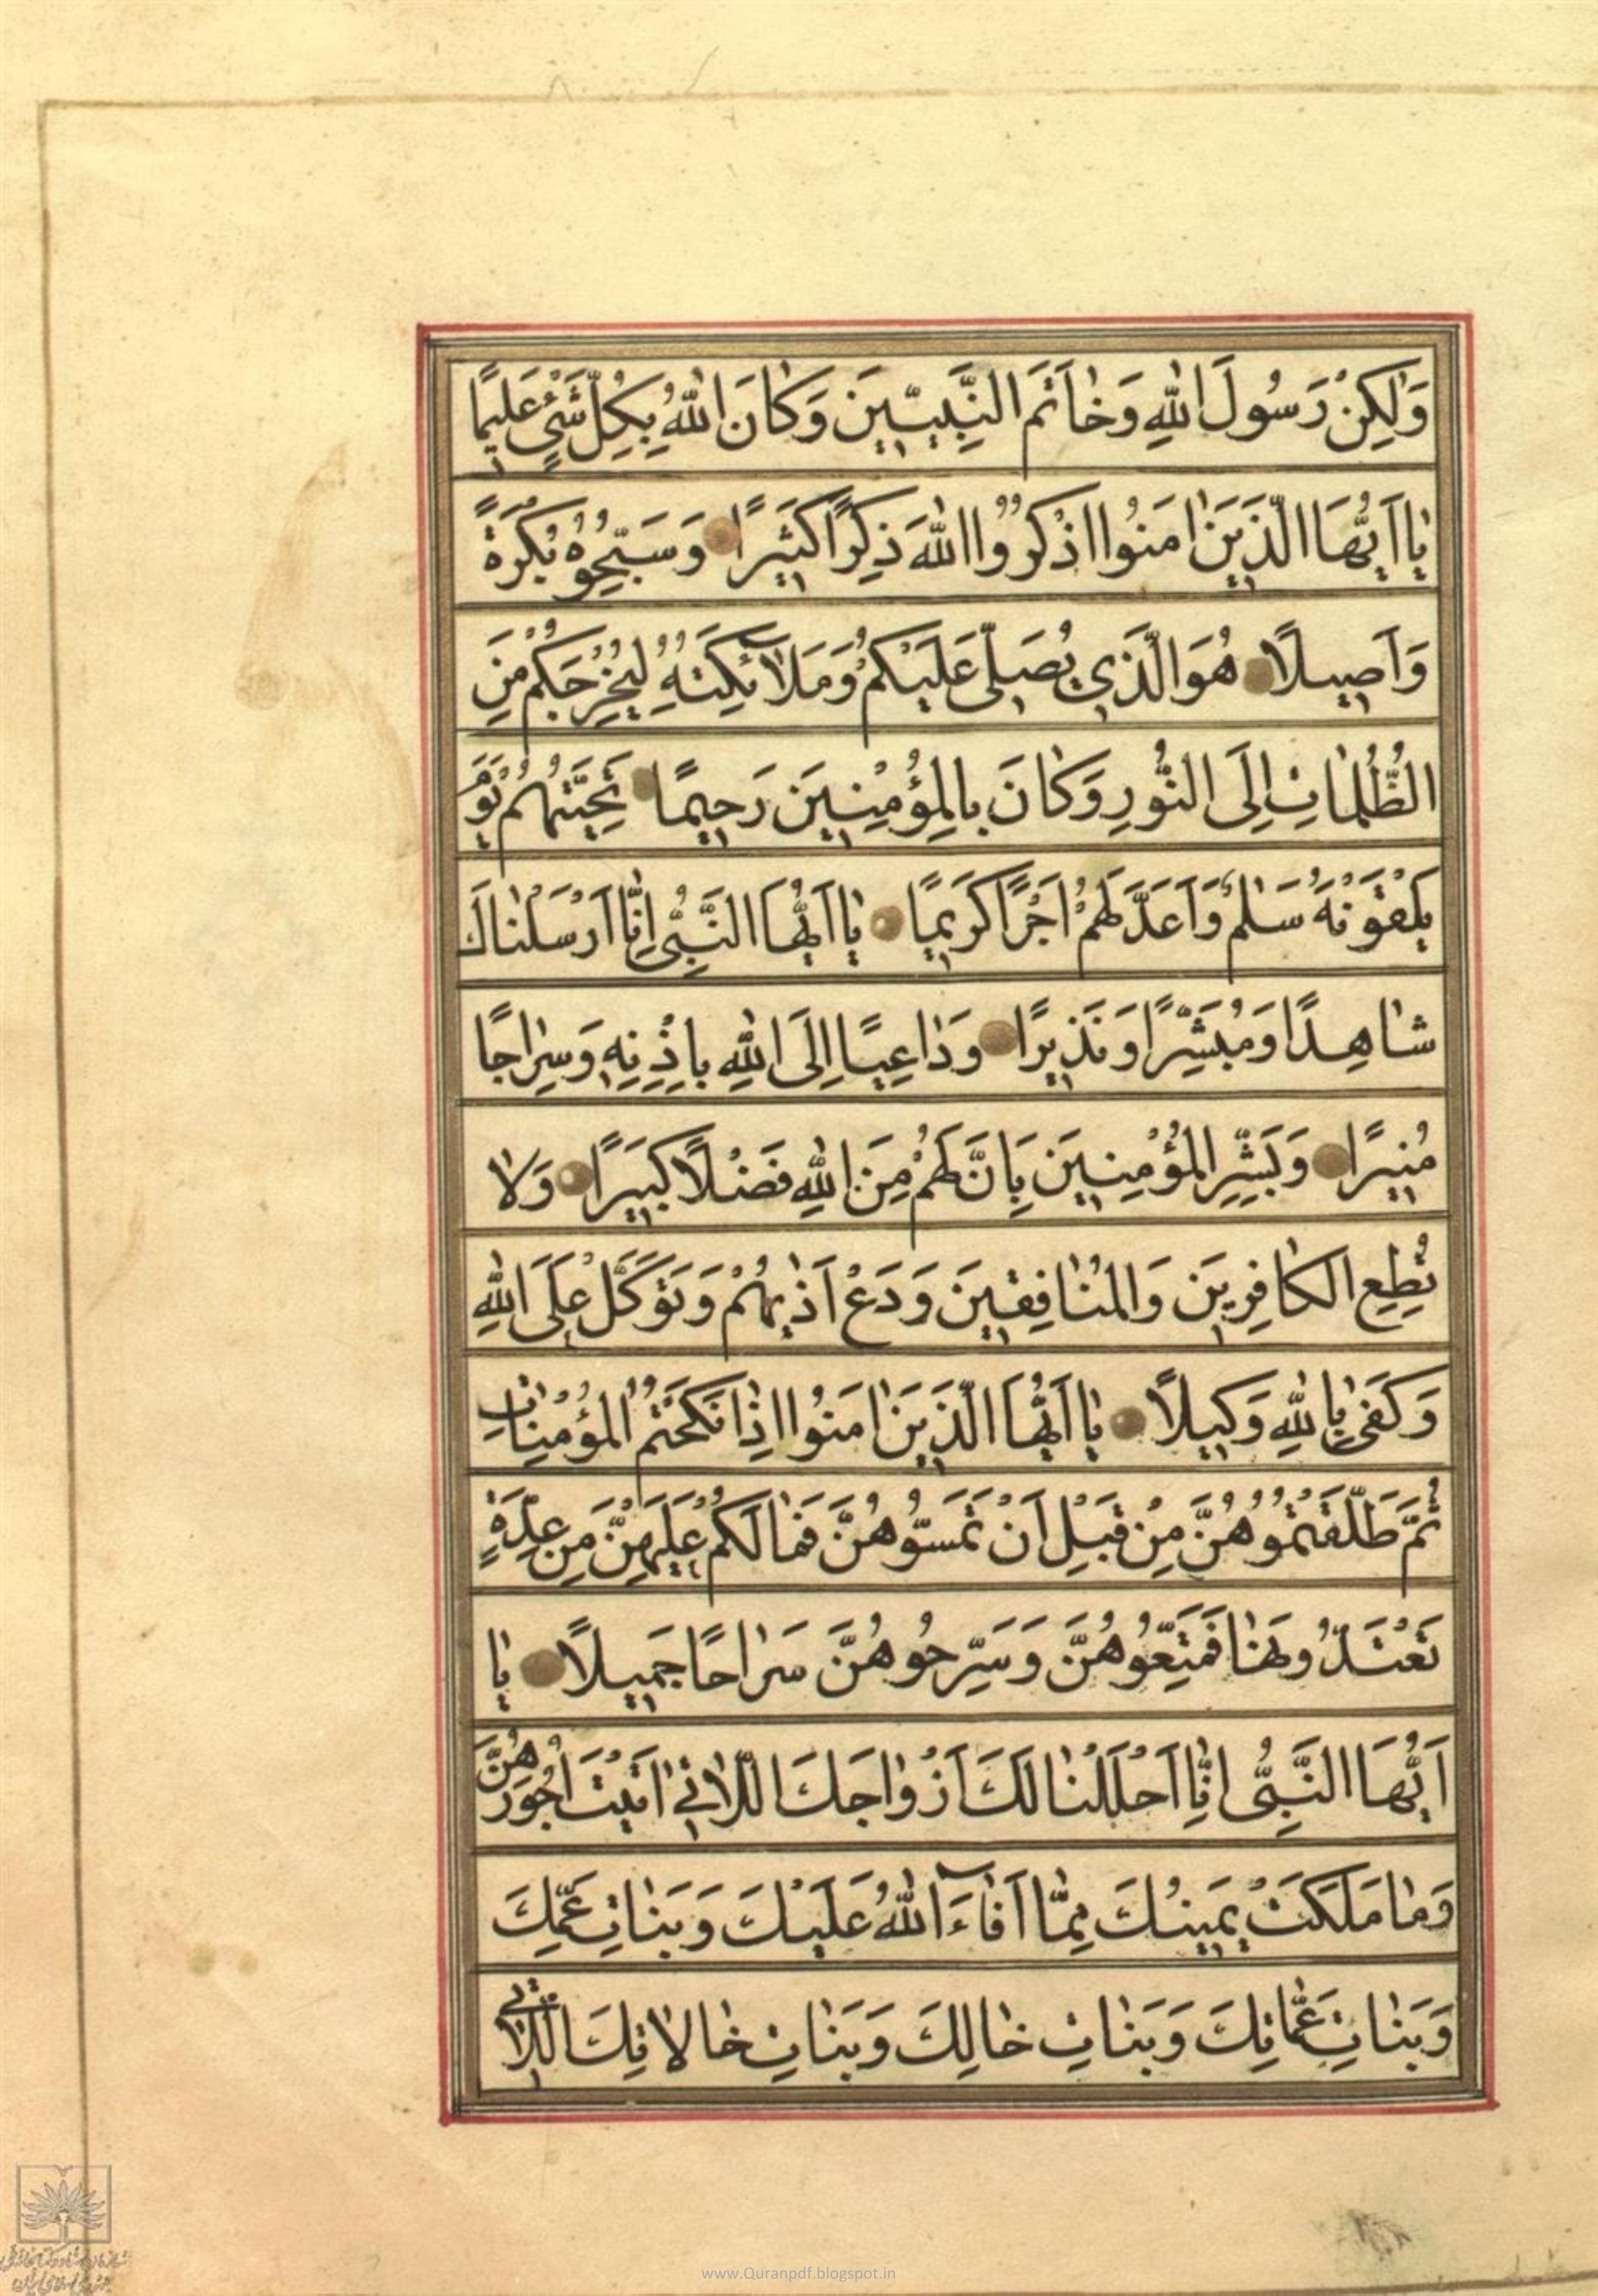 وَلٰكِنْ رَسُولَ اللّٰهِ وَخٰاتَمَ النَّبِيّٖينَ وَكٰانَ اللّٰهُ بِكُلِّ شَيْءٍ عَلٖيمًا
يٰا اَيُّهَا الَّذٖينَ اٰمَنُوا اذْكُرُوا اللّٰهَ ذِكْرًا كَثٖيرًا وَسَبِّحُوهُ بُكْرَةً
وَاَصٖيلًا هُوَ الَّذٖي يُصَلّٖي عَلَيْكُمْ وَمَلٰٓائِكَتُهُ لِيُخْرِجَكُمْ مِنَ
الظُّلُمٰاتِ اِلَى النُّورِ وَكٰانَ بِالْمُؤْمِنٖينَ رَحٖيمًا تَحِيَّتُهُمْ يَوْمَ
يَلْقَوْنَهُ سَلٰمٌ وَاَعَدَّ لَهُمْ اَجْرًا كَرٖيمًا يٰا اَيُّهَا النَّبِيُّ اِنّٰا اَرْسَلْنٰاكَ
شٰاهِدًا وَمُبَشِّرًا وَنَذٖيرًا وَدٰاعِيًا اِلَى اللّٰهِ بِاِذْنِهٖ وَسِرٰاجًا
مُنٖيرًا وَبَشِّرِ الْمُؤْمِنٖينَ بِاَنَّ لَهُمْ مِنَ اللّٰهِ فَضْلًا كَبٖيرًا وَلٰا
تُطِعِ الْكٰافِرٖينَ وَالْمُنٰافِقٖينَ وَدَعْ اَذٰيهُمْ وَتَوَكَّلْ عَلَى اللّٰهِ
وَكَفٰى بِاللّٰهِ وَكٖيلًا يٰا اَيُّهَا الَّذٖينَ اٰمَنُوا اِذٰا نَكَحْتُمُ الْمُؤْمِنٰاتِ
ثُمَّ طَلَّقْتُمُوهُنَّ مِنْ قَبْلِ اَنْ تَمَسُّوهُنَّ فَمٰا لَكُمْ عَلَيْهِنَّ مِنْ عِدَّةٍ
تَعْتَدُّونَهٰا فَمَتِّعُوهُنَّ وَسَرِّحُوهُنَّ سَرٰاحًا جَمٖيلًا يٰا
اَيُّهَا النَّبِيُّ اِنّٰا اَحْلَلْنٰا لَكَ اَزْوٰاجَكَ اللّٰاتٖي اٰتَيْتَ اُجُورَهُنَّ
وَمٰا مَلَكَتْ يَمٖينُكَ مِمّٰا اَفٰٓاءَ اللّٰهُ عَلَيْكَ وَبَنٰاتِ عَمِّكَ
وَبَنٰاتِ عَمّٰاتِكَ وَبَنٰاتِ خٰالِكَ وَبَنٰاتِ خٰالٰاتِكَ اللّٰاتٖي
www.Quranpdf.blogspot.in